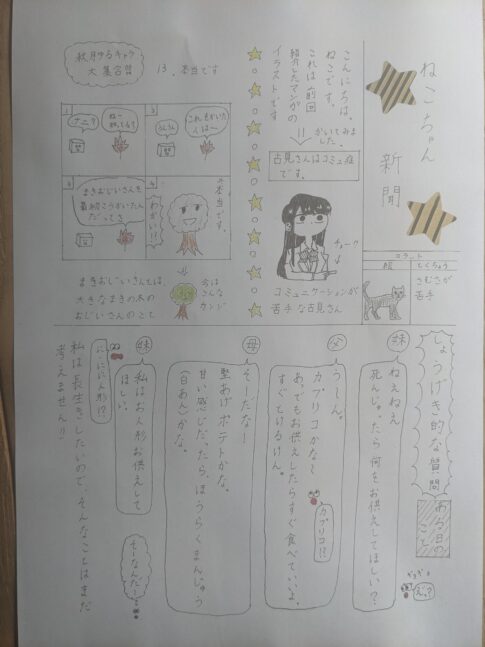 ねこちゃん
新聞
コラット
絵
とくちょう
さむさが
苦手
こんにちは、
ねこです。
これは前回
紹介したマンガの
イラストです
かいてみま
した。
古見さんはコミュ症
です。
チョーク
コミュニケーションが
苦手な古見さん
秋月ゆるキャラ
大集合
13、本当です
1
ナニ?
ねー
知ってる?
2
うんうん
これをかいた
人は〜
3
まきおじいさんを
最初こうかいたん
だってさ
4
わかい!!
本当です。
まきおじいさんとは、
大きなまきの木の
おじいさんのこと
今は
こんな
カンジ
しょうげき的な質問
ある日の
こと
ぎょぎょ
えっ?
妹
ねえねえ
死んじゃったら何をお供えしてほしい?
父
う〜ん。
カプリコかな〜
あ、でもお供えしたらすぐ食べていいよ。
すぐとけるけん。
カプリコ!?
母
そーだな〜
堅あげポテトかな。
甘い感じだったらほうらくまんじゅう
(白あん)かな。
そーなんだー
妹
私はお人形お供えして
ほしい。
に・に・にん人形!?
私は長生きしたいので、そんなことはまだ
考えません!!